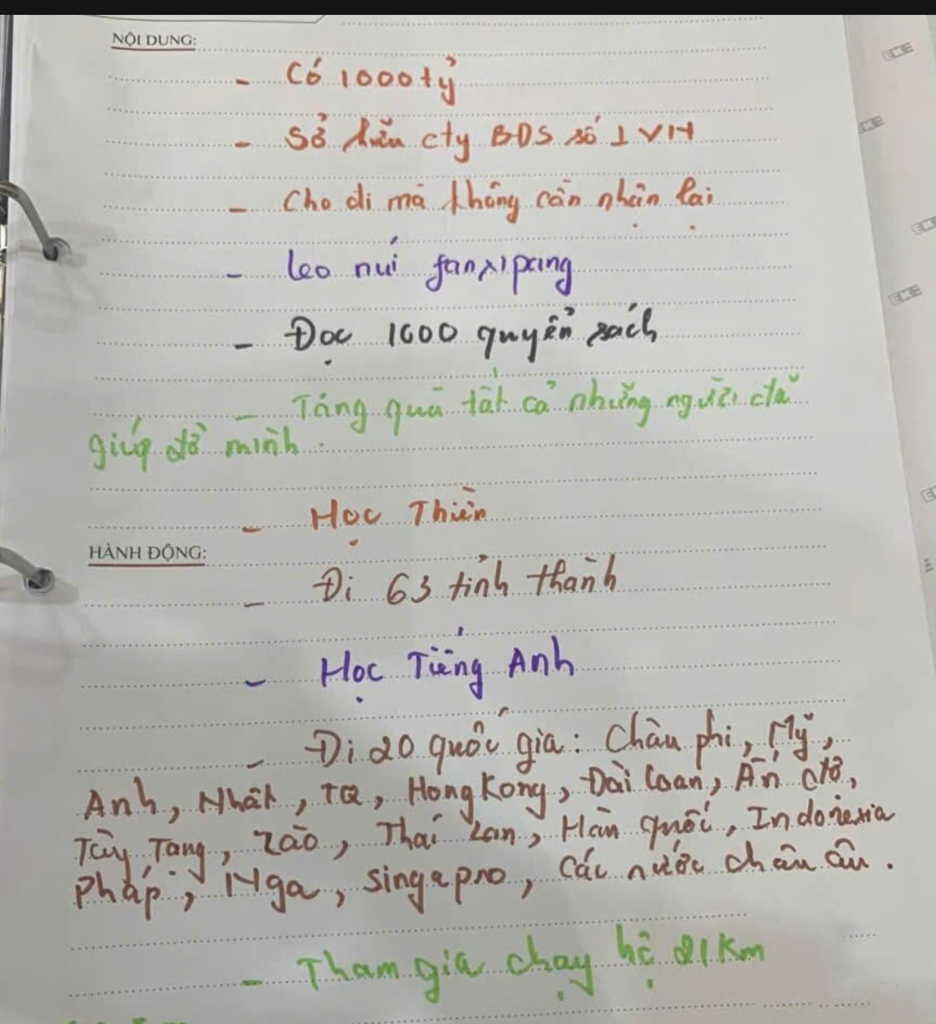 NỘI DUNG:
- Có 1000 tỷ
- Sở hữu cty BĐS số 1 VN
- Cho đi mà không cần nhận lại
- leo núi fanxipang
- Đọc 1000 quyển sách
- Tặng quà tất cả những người đã
giúp đỡ mình.
- Học Thiền
HÀNH ĐỘNG:
- Đi 63 tỉnh thành
- Học Tiếng Anh
- Đi 20 quốc gia: Châu phi, Mỹ,
Anh, Nhật, TQ, HongKong, Đài Loan, Ấn độ,
Tây Tạng, Lào, Thái Lan, Hàn quốc, Indonexia
Pháp, Nga, singapro, các nước châu âu.
- Tham gia chạy bộ 21Km